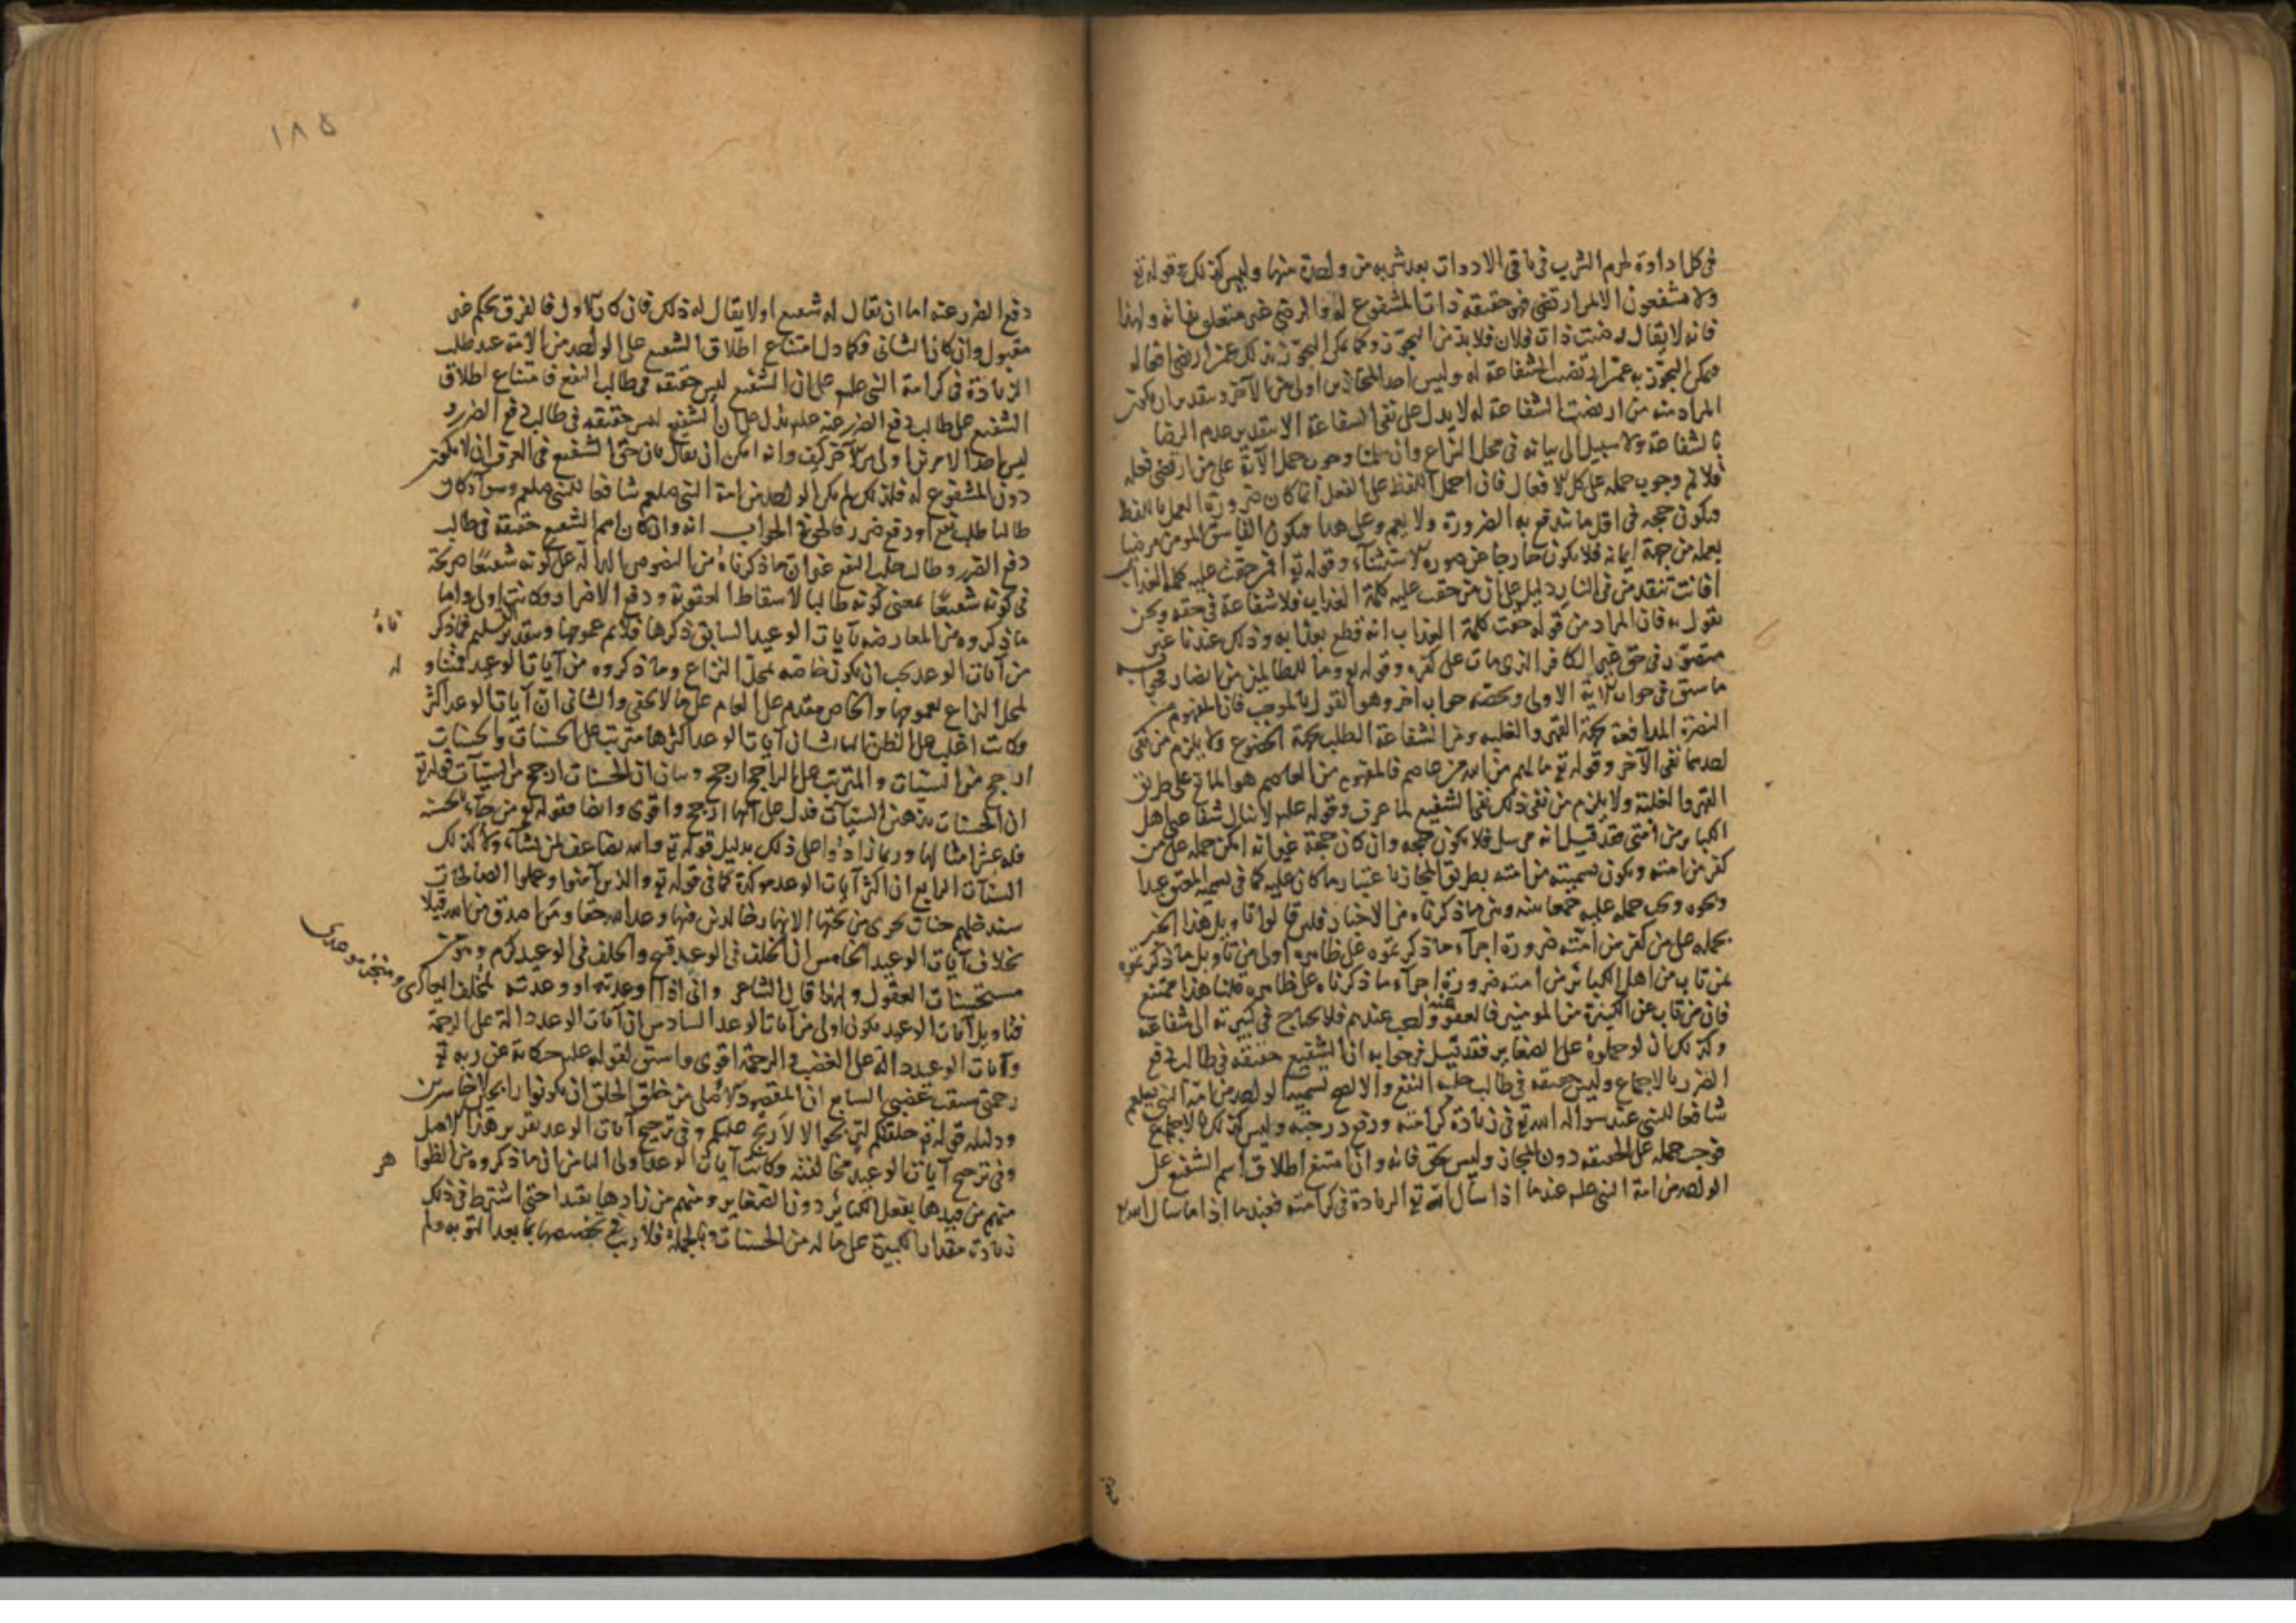 في كل اداوة لحرم الشرب في باقي الادوات بعد شربه من واحدة منها وليس كذلك وقوله تع
ولا يشفعون الا لمن ارتضى فهو حقيقة ذات المشفوع له والرضى غير متعلق بها فانه ولهذا
فانه لا يقال رضيت ذات فلان فلا بد من التجوز وكما يمكن التجوز بذلك عمن ارتضى افعاله
فيمكن التجوز به عمن ارتضيت الشفاعة له وليس احد المجازين اولى من الآخر وبتقدير ان يكون
المراد منه من ارتضيت الشفاعة له لا يدل على نفي الشفاعة الا بتقدير عدم الرضا
بالشفاعة ولا سبيل الى بيانه في محل النزاع وان سلمنا وجوب حمل الآية على من ارتضى فعله
فلا نم وجوب حمله على كل الافعال فان حمل اللفظ على الفعل انما كان ضرورة العمل باللفظ
فيكون حجه في اقل ما تندفع به الضرورة ولا يعم وعلى هذا فيكون الفاسق المومن مرضيا
بعمله من جهة ايمانه فلا يكون خارجا عن صورة الاستثناء وقوله تع افمن حقت عليه كلمة العذاب
افانت تنقذ من في النار دليل على ان من حقت عليه كلمة العذاب فلا شفاعة في حقه ونحن
نقول به فان المراد من قوله حقت كلمة العذاب انه قطع بعذابه وذلك عندنا غير
متصور في حق غير الكافر الذي مات على كفره وقوله تع وما للظالمين من انصار فجوابه
ما سبق في جواب الآية الاولى ويخصه جواب اخر وهو القول بالموجب فان المفهوم من
النصرة المدافعة بجهة القهر والغلبه ومن الشفاعة الطلب بجهة الخضوع ولا يلزم من نفي
احدهما نفي الآخر وقوله تع ما لهم من الله من عاصم فالمفهوم من العاصم هو المانع على طريق
القهر والغلبة ولا يلزم من نفي ذلك نفي الشفيع لما عرف وقوله علم لا ينال شفاعتي اهل
الكبائر من امتي فقد قيل انه مرسل فلا يكون حجه وان كان حجة غير انه امكن حمله على من
كفر من امته ويكون تسميته من امته بطريق المجاز باعتبار ما كان عليه كما في تسمية المعتق عبدا
ونحوه ويجب حمله عليه جمعا بينه وبين ما ذكرناه من الاخبار فلئن قالوا تاويل هذا الخبر
بحمله على من كفر من امته ضرورة اجراء ما ذكرتموه على ظاهره اولى من تاويل ما ذكرتموه
بمن تاب من اهل الكبائر من امته ضرورة اجراء ما ذكرناه على ظاهره قلنا هذا ممتنع
فان من تاب عن الكبيرة من المومنين فالعفو عنه واجب عندهم فلا يحتاج في كبيرته الى شفاعة
وكذلك ان لو حملوه على الصغاير فقد قيل في جوابه ان الشفيع حقيقة في طالب دفع
الضرر بالاجماع وليس حقيقه في طالب جلب النفع والا لصح تسمية الواحد من امة النبي صلعم
شافعا للنبي عند سواله الله تع في زيادة كرامته ورفع درجته وليس كذلك بالاجماع
فوجب حمله على الحقيقه دون المجاز وليس بحق فانه وان امتنع اطلاق اسم الشفيع على
الواحد من امة النبي علم عندما اذا سال الله تع الزيادة في كرامته فعندما اذا ما سال الله تع
١٨٥
دفع الضرر عنه اما ان يقال له شفيع او لا يقال له ذلك فان كان الاول فالفرق بحكم غير
مقبول وان كان الثاني فكما دل امتناع اطلاق الشفيع على الواحد من الامة عند طلب
الزيادة في كرامة النبي علم على ان الشفيع ليس حقيقه في طالب النفع فامتناع اطلاق
الشفيع على طالب دفع الضرر عنه علم يدل على ان الشفيع ليس حقيقه في طالب دفع الضرر و
ليس احد الامرين اولى من الآخر كيف وانه امكن ان يقال بان حق الشفيع في العرف ان لا يكون
دون المشفوع له فلذلك لم يكن الواحد من امة النبي صلعم شافعا للنبي صلعم وسواء كان
طالبا طلب نفع او دفع ضرر فالحق في الجواب انه وان كان اسم الشفيع حقيقة في طالب
دفع الضرر وطالب جلب النفع غير ان ما ذكرناه من النصوص الدالة على كونه شفيعا صريحة
في كونه شفيعا بمعنى كونه طالبا لاسقاط العقوبة ودفع الاضرار فكانت اولى واما
ما ذكروه من المعارضه بآيات الوعيد السابق ذكرها فلا نم عمومها وبتقدير التسليم فما ذكرناه
من آيات الوعد يجب ان يكون خاصه بمحل النزاع وما ذكروه من آيات الوعيد فمتناوله
لمحل النزاع بعمومها والخاص مقدم على العام على ما لا يخفى والثاني ان آيات الوعد اكثر
فكانت اغلب على الظن الثالث ان آيات الوعد اكثرها مترتب على الحسنات والحسنات
ارجح من السيئات والمترتب على الراجح ارجح وبيان ان الحسنات ارجح من السيئات قوله تع
ان الحسنات يذهبن السيئات فدل على انها ارجح واقوى وايضا فقوله تع من جاء بالحسنه
فله عشر امثالها وربما زادوا على ذلك بدليل قوله تع والله يضاعف لمن يشاء ولا كذلك
السيئات الرابع ان اكثر آيات الوعد موكدة كما في قوله تع والذين آمنوا وعملوا الصالحات
سندخلهم جنات تجري من تحتها الانهار خالدين فيها وعد الله حقا ومن اصدق من الله قيلا
بخلاف آيات الوعيد الخامس ان الخلف في الوعد قبيح والخلف في الوعيد كرم وهو من
مستحسنات العقول ولهذا قال الشاعر واني اذا اوعدته او وعدته لمخلف ايعادي ومنجز موعدي
فتاويل آيات الوعيد يكون اولى من آيات الوعد السادس ان آيات الوعد دالة على الرحمة
وآيات الوعيد دالة على الغضب والرحمة اقوى واسبق لقوله علم حكاية عن ربه تع
رحمتي سبقت غضبي السابع ان المقصود الاصلي من خلق الخلق ان يكونوا رابحين لا خاسرين
ودليله قوله تع خلقتكم لتربحوا لا لاربح عليكم وفي ترجيح آيات الوعد تقرير هذا الاصل
وفي ترجيح آيات الوعيد مخالفته فكانت آيات الوعد اولى الثامن ان ما ذكروه من الظواهر
منهم من قيدها بفعل الكبائر دون الصغاير ومنهم من زادها تقييدا حتى اشترط في ذلك
زيادة مقدار الكبيرة على ما له من الحسنات وبالجملة فلا ريب في تخصيصها بما بعد التوبه ولم